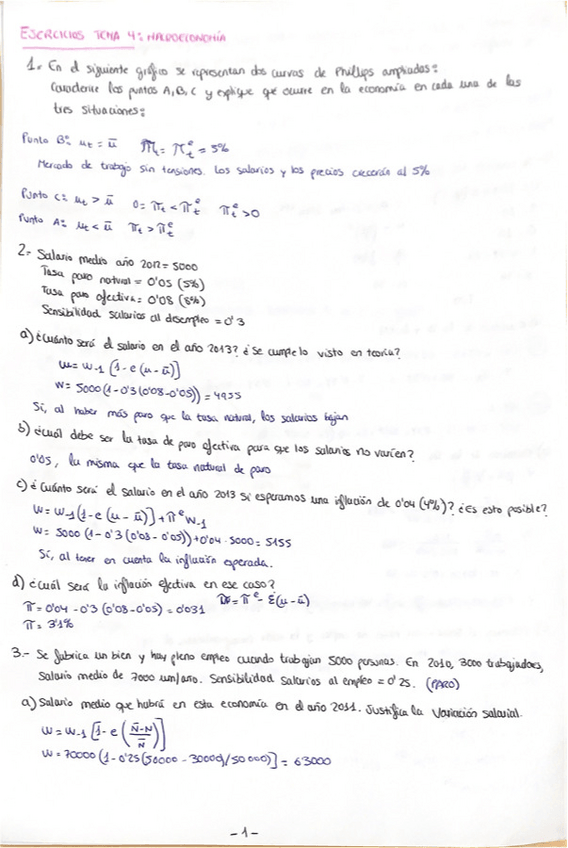 EJERCICIOS TEMA 4: MACROECONOMÍA
1.- En el siguiente gráfico se representan dos curvas de Phillips ampliadas:
Caracterice los puntos A, B, C y explique qué ocurre en la economía en cada una de las
tres situaciones:
Punto B: ut = ū πt = πt^e = 5%
Mercado de trabajo sin tensiones. Los salarios y los precios crecerán al 5%
Punto C: ut > ū 0 = πt < πt^e πt^e > 0
Punto A: ut < ū πt > πt^e
2.- Salario medio año 2012 = 5000
Tasa paro natural = 0'05 (5%)
Tasa paro efectiva = 0'08 (8%)
Sensibilidad salarios al desempleo = 0'3
a) ¿Cuánto será el salario en el año 2013? ¿Se cumple lo visto en teoría?
w = w-1 [1 - e (u - ū)]
w = 5000 (1 - 0'3 (0'08 - 0'05)) = 4955
Sí, al haber más paro que la tasa natural, los salarios bajan
b) ¿Cuál debe ser la tasa de paro efectiva para que los salarios no varíen?
0'05, la misma que la tasa natural de paro
c) ¿Cuánto será el salario en el año 2013 si esperamos una inflación de 0'04 (4%)? ¿Es esto posible?
w = w-1 [1 - e (u - ū)] + π^e w-1
w = 5000 (1 - 0'3 (0'08 - 0'05)) + 0'04 · 5000 = 5155
Sí, al tener en cuenta la inflación esperada.
d) ¿Cuál será la inflación efectiva en ese caso?
π = π^e - ε(u - ū)
π = 0'04 - 0'3 (0'08 - 0'05) = 0'031
π = 3'1%
3.- Se fabrica un bien y hay pleno empleo cuando trabajan 5000 personas. En 2010, 3000 trabajadores,
salario medio de 7000 um/año. Sensibilidad salarios al empleo = 0'25. (PARO)
a) Salario medio que habrá en esta economía en el año 2011. Justifica la variación salarial.
w = w-1 [1 - e (N̄-N / N̄)]
w = 70000 (1 - 0'25 (50000 - 30000) / 50000)] = 63000
- 1 -